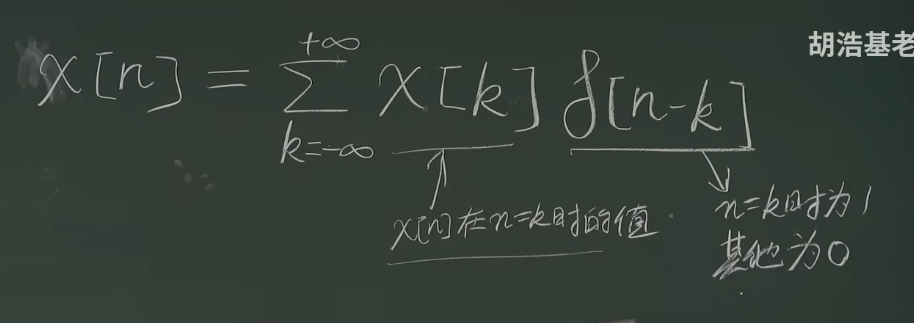 胡浩基老
x[n] = \sum_{k=-∞}^{+∞} x[k] δ[n-k]
x[n]在n=k时的值
n=k时为1
其他为0